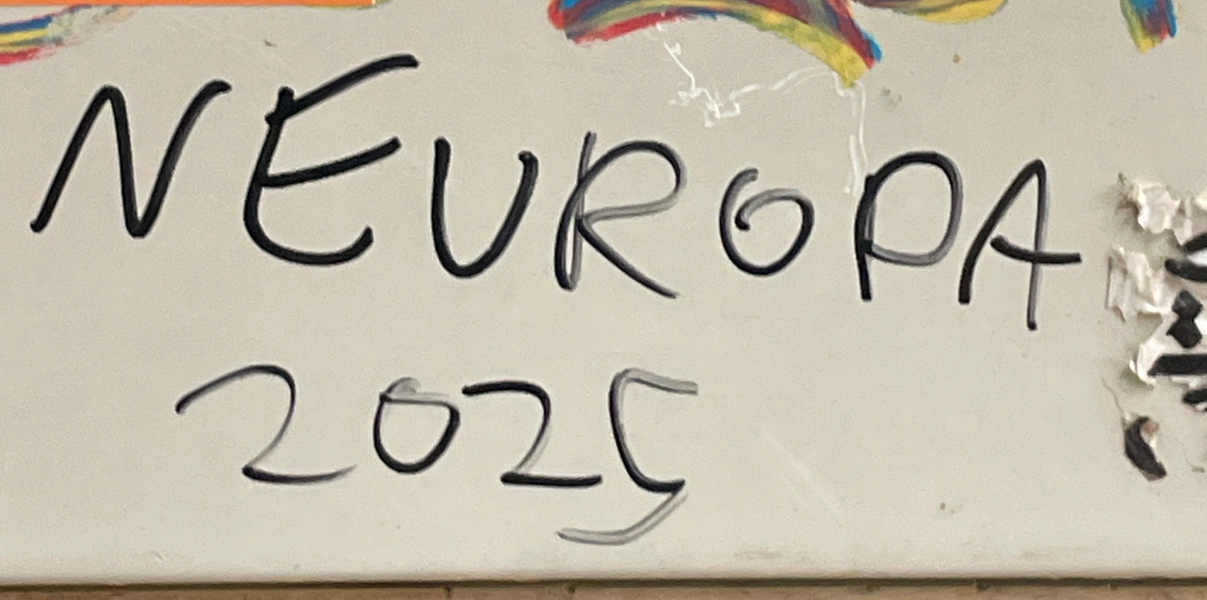 NEUROPA
2025